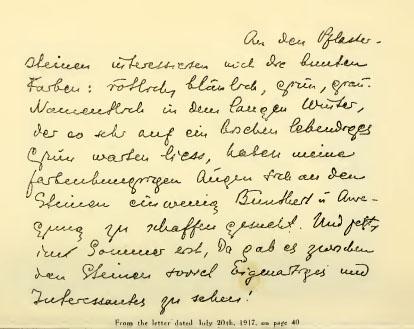 An den Pflaster-
steinen interessieren mich die bunten
Farben: rötlich, bläulich, grün, grau.
Namentlich in dem langen Winter,
der so sehr auf ein bischen lebendiges
Grün warten liess, haben meine
farbenhungrigen Augen sich an den
Steinen ein wenig Buntheit u. Anre-
gung zu schaffen gesucht. Und jetzt,
im Sommer erst, da gab es zwischen
den Steinen soviel Eigenartiges und
Interessantes zu sehen!
From the letter dated July 20th, 1917, on page 40